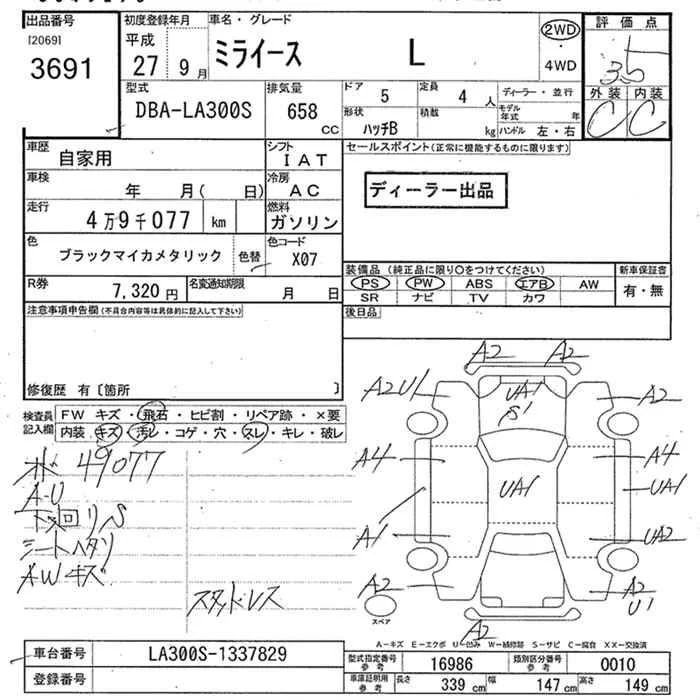 出品番号
[2069]
3691
初度登録年月
平成
27 9 月
車名・グレード
ミライース L
2WD
・
4WD
評価点
3.5
外装 内装
C C
型式
DBA-LA300S
排気量
658 CC
ドア 5
定員 4 人
形状 ハッチB
積載 kg
ディーラー・並行
モデル年式 年
ハンドル 左・右
車歴
自家用
シフト
IAT
車検
年 月( 日)
冷房
AC
走行
4万9千077 km
燃料
ガソリン
色
ブラックマイカメタリック
色替
色コード
X07
R券
7,320 円
名変通知期限
月 日
セールスポイント(正常に機能するものに限ります)
ディーラー出品
装備品 (純正品に限り○をつけてください)
PS PW ABS エアB AW
SR ナビ TV カワ
新車保証書
有・無
後日品
注意事項申告欄(不具合内容等は具体的に記入して下さい)
修復歴 有〔箇所 〕
検査員記入欄
FW キズ・飛石・ヒビ割・リペア跡・×要
内装・キズ・汚レ・コゲ・穴・スレ・キレ・破レ
49077
A-U
下回りS
シートヘタリ
AWキズ
スタッドレス
A2 A2
A2U1 UA1 A2
S1
A4 A4
UA1 UA1
A1 UA2
A2 A2
U1
スペア
A2
A-キズ E-エクボ U-凹み W-補修跡 S-サビ C-腐食 XX-交換済
車台番号
LA300S-1337829
登録番号
型式指定番号
参考
16986
類別区分番号
参考
0010
車庫証明用
参考
長さ 339 cm
幅 147 cm
高さ 149 cm